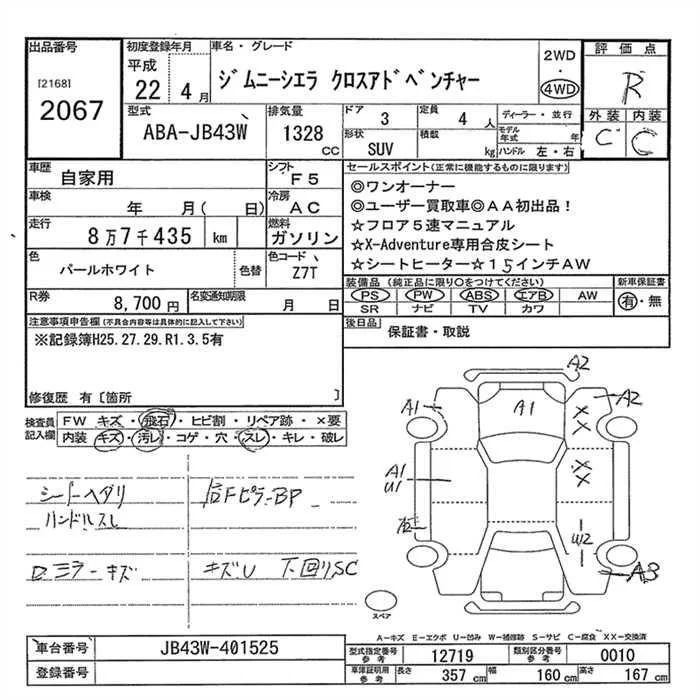 出品番号
[2168]
2067
初度登録年月
平成
22 4月
車名・グレード
ジムニーシエラ クロスアドベンチャー
2WD
・
4WD
評価点
R
外装 内装
C C
型式
ABA-JB43W
排気量
1328
CC
ドア 3
形状
SUV
定員 4人
積載 kg
ディーラー・並行
モデル年式 年
ハンドル 左・右
車歴
自家用
シフト
F5
車検
年 月( 日)
冷房
AC
走行
8万7千435 km
燃料
ガソリン
色
パールホワイト
色替
色コード
Z7T
R券
8,700円
名変通知期限
月 日
セールスポイント(正常に機能するものに限ります)
◎ワンオーナー
◎ユーザー買取車◎AA初出品!
☆フロア5速マニュアル
☆X-Adventure専用合皮シート
☆シートヒーター☆15インチAW
装備品(純正品に限り○をつけてください)
PS PW ABS エアB AW
SR ナビ TV カワ
新車保証書
有・無
後日品
保証書・取説
注意事項申告欄(不具合内容等は具体的に記入して下さい)
※記録簿H25.27.29.R1.3.5有
修復歴 有〔箇所 〕
検査員記入欄
FW キズ・飛石・ヒビ割・リペア跡・×要
内装 キズ・汚レ・コゲ・穴・スレ・キレ・破レ
シートヘタリ
ハンドルスレ
ロ.ミラーキズ
右Fピラ-BP
キズU 下回りSC
A2
A1
A1
A2
××
A1
U1
××
W2
A3
スペア
A-キズ E-エクボ U-凹み W-補修跡 S-サビ C-腐食 XX-交換済
車台番号
JB43W-401525
登録番号
型式指定番号
参考
12719
類別区分番号
参考
0010
車庫証明用
参考
長さ 357cm
幅 160cm
高さ 167cm